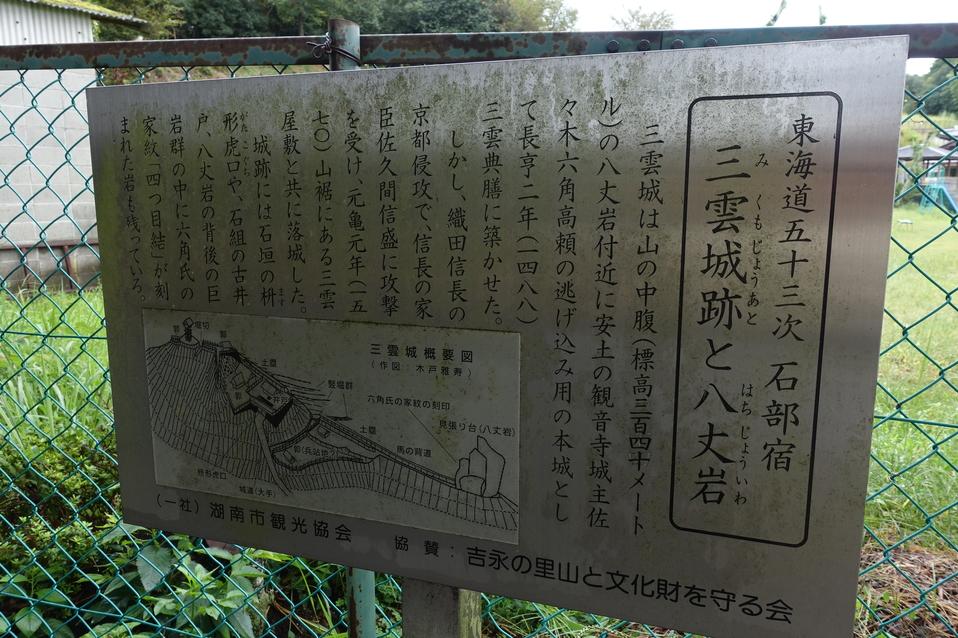 東海道五十三次 石部宿
三雲城跡と八丈岩
み くもじょうあと
はちじょういわ
三雲城は山の中腹(標高三百四十メート
ル)の八丈岩付近に安土の観音寺城主佐
々木六角高頼の逃げ込み用の本城とし
て長亨二年(一四八八)
三雲典膳に築かせた。
しかし、織田信長の
京都侵攻で、信長の家
臣佐久間信盛に攻撃
を受け、元亀元年(一五
七〇)山裾にある三雲
屋敷と共に落城した。
城跡には石垣の枡
ます
形虎口や、石組の古井
がた こぐち
戸、八丈岩の背後の巨
岩群の中に六角氏の
家紋「四つ目結」が刻
まれた岩も残っている。
三雲城概要図
(作図:木戸雅寿)
堀切
郭
郭
土塁
郭
井戸
竪堀群
六角氏の家紋の刻印
土塁
見張り台(八丈岩)
馬の背道
郭(兵站地)
枡形虎口
城道(大手)
(一社)湖南市観光協会
協賛:吉永の里山と文化財を守る会